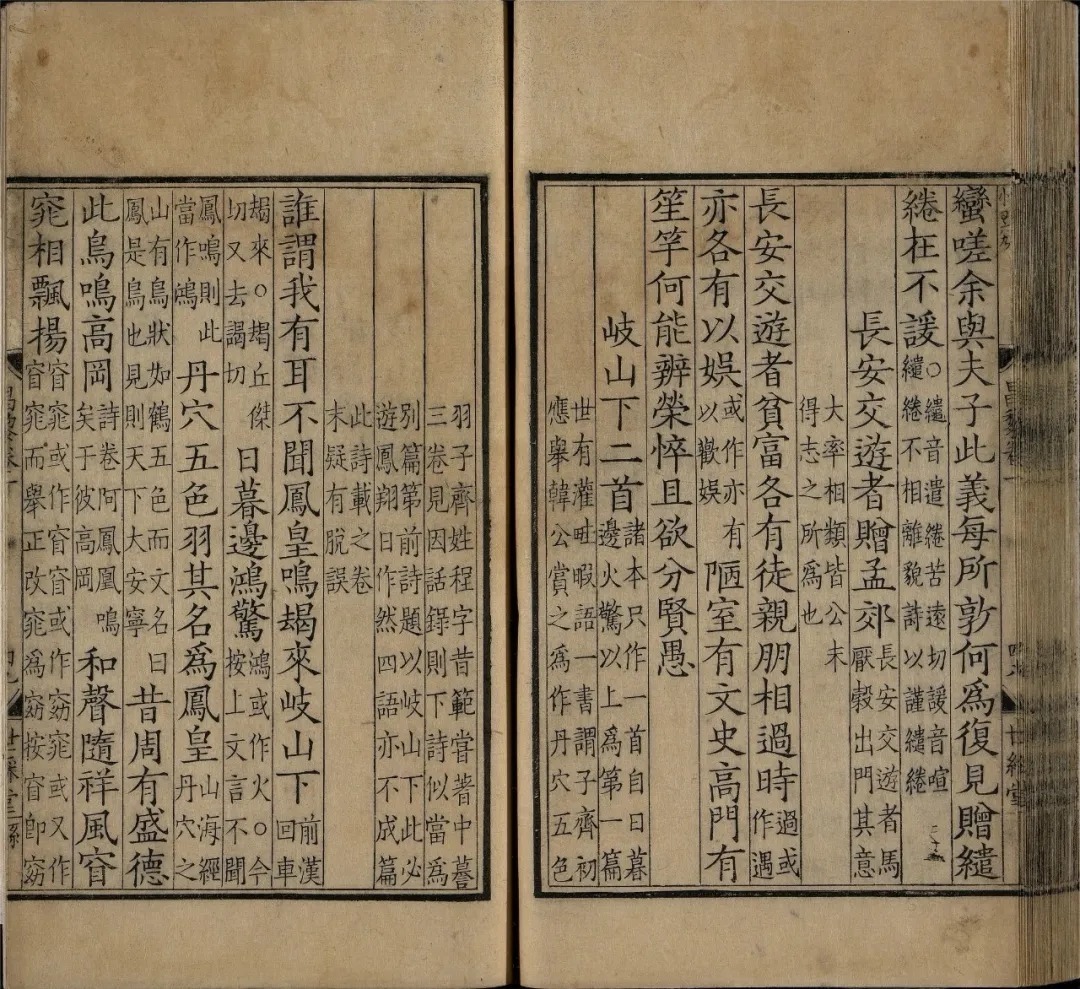 蠻嗟余與夫子此義每所敦何爲復見贈繾
綣在不諼○繾音遣綣苦遠切諼音暄繾綣不相離貌詩以謹繾綣
長安交遊者贈孟郊長安交遊者馬厭穀出門其意
大率相類皆公未得志之所爲也
長安交遊者貧富各有徒親朋相過時過或作遇
亦各有以娛或作亦有以歡娛陋室有文史高門有
笙竽何能辨榮悴且欲分賢愚
岐山下二首諸本只作一首自日暮邊火驚以上爲第一篇
世有灌畦暇語一書謂子齊初應舉韓公賞之爲作丹穴五色
羽子齊姓程字昔範嘗著中謩三卷見因話錄則下詩似當爲
別篇第前詩題以岐山下此必遊鳳翔日作然四語亦不成篇
此詩載之卷末疑有脫誤
誰謂我有耳不聞鳳皇鳴朅來岐山下前漢回車
朅來○朅丘傑切又去謁切日暮邊鴻驚鴻或作火○今按上文言不聞
鳳鳴則此當作鴻丹穴五色羽其名爲鳳皇山海經丹穴之
山有鳥狀如鶴五色而文名曰鳳是鳥也見則天下大安寧昔周有盛德
此鳥鳴高岡詩卷阿鳳凰鳴矣于彼高岡和聲隨祥風窅
窕相飄揚窅窕或作窅窅或作窈窕或又作窅窕而舉正改窕爲窈按窅卽窈
世綵堂